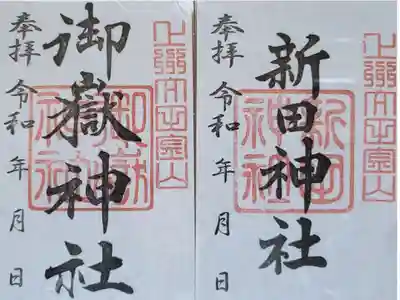 新田
神社
新田神社
奉拝 令和 年 月 日
御嶽神社
奉拝 令和 年 月 日